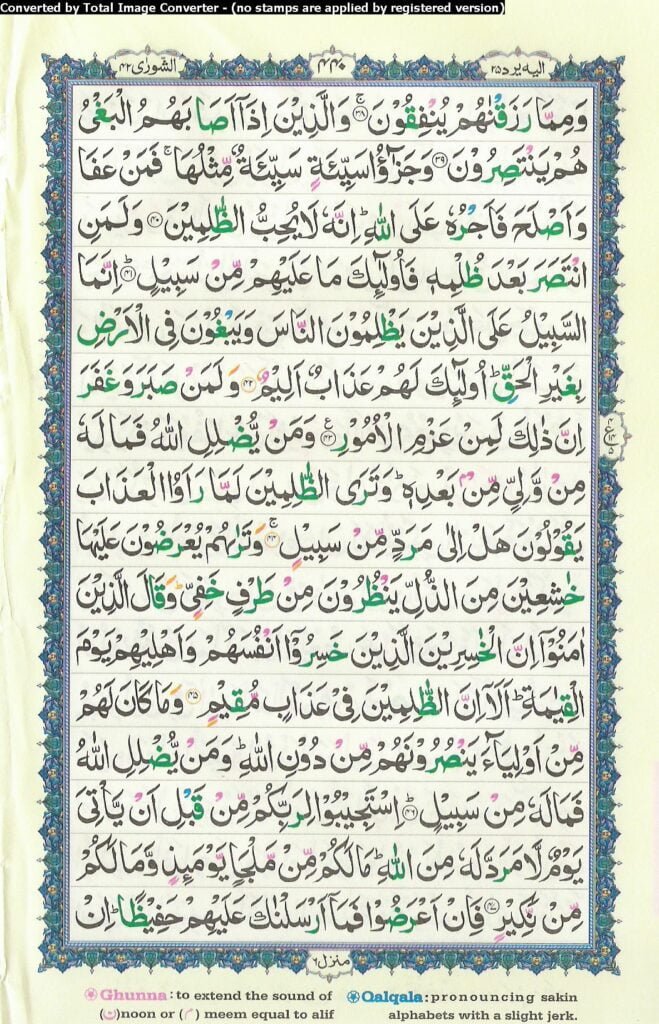 Converted by Total Image Converter - (no stamps are applied by registered version)
الشورٰی ۴۲ ۴۴۰ الیه یرد ۲۵
وَمِمَّا رَزَقْنٰهُمْ يُنْفِقُوْنَ ۚ‏﴿۳۸﴾ وَالَّذِيْنَ اِذَآ اَصَابَهُمُ الْبَغْىُ
هُمْ يَنْتَصِرُوْنَ ﴿۳۹﴾ وَجَزٰٓؤُا سَيِّئَةٍ سَيِّئَةٌ مِّثْلُهَا ۚ فَمَنْ عَفَا
وَاَصْلَحَ فَاَجْرُهٗ عَلَى اللّٰهِ ؕ اِنَّهٗ لَا يُحِبُّ الظّٰلِمِيْنَ ﴿۴۰﴾ وَلَمَنِ
انْتَصَرَ بَعْدَ ظُلْمِهٖ فَاُولٰٓئِكَ مَا عَلَيْهِمْ مِّنْ سَبِيْلٍ ؕ﴿۴۱﴾ اِنَّمَا
السَّبِيْلُ عَلَى الَّذِيْنَ يَظْلِمُوْنَ النَّاسَ وَيَبْغُوْنَ فِى الْاَرْضِ
بِغَيْرِ الْحَقِّ ؕ اُولٰٓئِكَ لَهُمْ عَذَابٌ اَلِيْمٌ ﴿۴۲﴾ وَلَمَنْ صَبَرَ وَغَفَرَ
اِنَّ ذٰلِكَ لَمِنْ عَزْمِ الْاُمُوْرِ ﴿۴۳﴾ ع وَمَنْ يُّضْلِلِ اللّٰهُ فَمَا لَهٗ
مِنْ وَّلِىٍّ مِّنْۢ بَعْدِهٖ ؕ وَتَرَى الظّٰلِمِيْنَ لَمَّا رَاَوُا الْعَذَابَ
يَقُوْلُوْنَ هَلْ اِلٰى مَرَدٍّ مِّنْ سَبِيْلٍ ۚ﴿۴۴﴾ وَتَرٰىهُمْ يُعْرَضُوْنَ عَلَيْهَا
خٰشِعِيْنَ مِنَ الذُّلِّ يَنْظُرُوْنَ مِنْ طَرْفٍ خَفِىٍّ ؕ وَقَالَ الَّذِيْنَ
اٰمَنُوْٓا اِنَّ الْخٰسِرِيْنَ الَّذِيْنَ خَسِرُوْٓا اَنْفُسَهُمْ وَاَهْلِيْهِمْ يَوْمَ
الْقِيٰمَةِ ؕ اَلَاۤ اِنَّ الظّٰلِمِيْنَ فِىْ عَذَابٍ مُّقِيْمٍ ﴿۴۵﴾ وَمَا كَانَ لَهُمْ
مِّنْ اَوْلِيَآءَ يَنْصُرُوْنَهُمْ مِّنْ دُوْنِ اللّٰهِ ؕ وَمَنْ يُّضْلِلِ اللّٰهُ
فَمَا لَهٗ مِنْ سَبِيْلٍ ؕ﴿۴۶﴾ اِسْتَجِيْبُوْا لِرَبِّكُمْ مِّنْ قَبْلِ اَنْ يَّاْتِىَ
يَوْمٌ لَّا مَرَدَّ لَهٗ مِنَ اللّٰهِ ؕ مَا لَكُمْ مِّنْ مَّلْجَاٍ يَّوْمَئِذٍ وَّمَا لَكُمْ
مِّنْ نَّكِيْرٍ ﴿۴۷﴾ فَاِنْ اَعْرَضُوْا فَمَاۤ اَرْسَلْنٰكَ عَلَيْهِمْ حَفِيْظًا ؕ اِنْ
منزل ۶
Ghunna: to extend the sound of
(ن)noon or (م) meem equal to alif
Qalqala: pronouncing sakin
alphabets with a slight jerk.